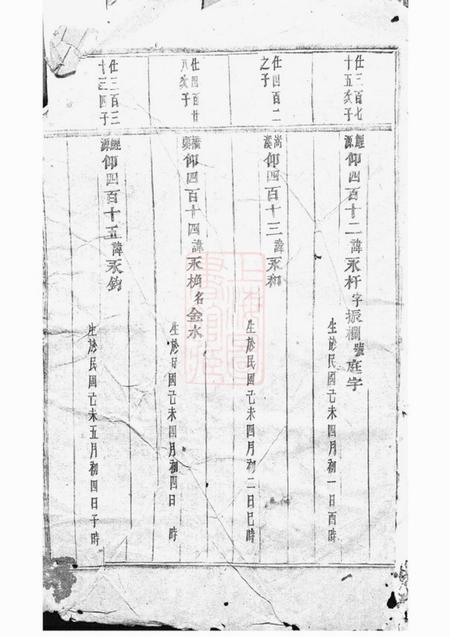 仕三百七
十五次子
經源 仰四百十二 諱永杆 字振欄 號庭字
生於民國己未四月初一日酉時
仕四百二
之子
尚溪 仰四百十三 諱永和
生於民國己未四月初二日巳時
仕四百廿
八次子
仰四百十四 諱永橋 名金水
生於民國己未四月初四日 時
仕三百三
十三四子
經源 仰四百十五 諱永鈞
生於民國己未五月初四日子時